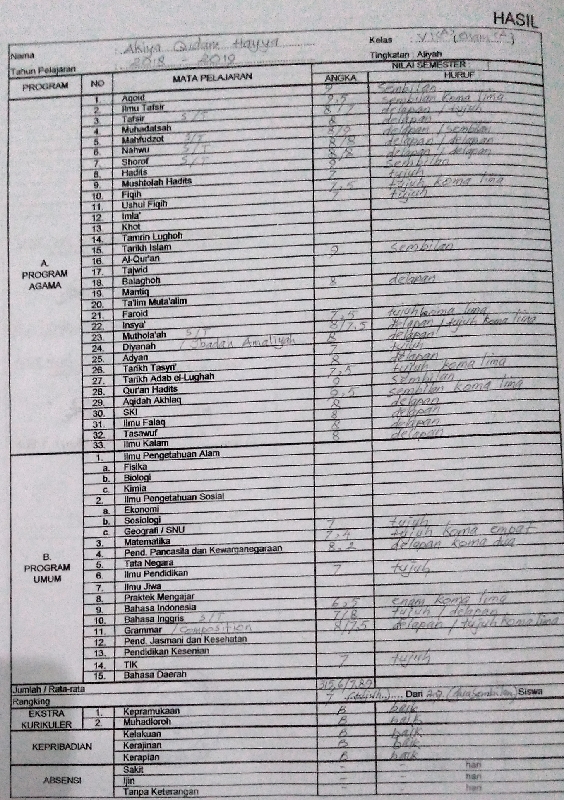 HASIL
Nama : Akhya Qudam Hayya Kelas : V (A) (Enam (A)
Tahun Pelajaran : 2018 - 2019 Tingkatan : Aliyah
PROGRAM NO MATA PELAJARAN NILAI SEMESTER
ANGKA HURUF
A. PROGRAM AGAMA
1. Aqoid 9 sembilan
2. Ilmu Tafsir 9,5 sembilan koma lima
3. Tafsir S/T 8/7 delapan / tujuh
4. Muhadatsah 8 delapan
5. Mahfudzot S/T 8/9 delapan / sembilan
6. Nahwu S/T 8/8 delapan / delapan
7. Shorof S/T 8/8 delapan / delapan
8. Hadits 9 sembilan
9. Mushtolah Hadits 7 tujuh
10. Fiqih 7,5 tujuh koma lima
11. Ushul Fiqih 7 tujuh
12. Imla'
13. Khot
14. Tamrin Lughoh
15. Tarikh Islam 9 sembilan
16. Al-Qur'an
17. Tajwid
18. Balaghoh 8 delapan
19. Mantiq
20. Ta'lim Muta'alim
21. Faroid 7,5 tujuh koma lima
22. Insya' 8/7,5 delapan / tujuh koma lima
23. Muthola'ah S/T 8 delapan
24. Diyanah / Ibadah Amaliyah 7 tujuh
25. Adyan 8 delapan
26. Tarikh Tasyri' 7,5 tujuh koma lima
27. Tarikh Adab el-Lughah 9 sembilan
28. Qur'an Hadits 9,5 sembilan koma lima
29. Aqidah Akhlaq 8 delapan
30. SKI 8 delapan
31. Ilmu Falaq 8 delapan
32. Tasawuf 8 delapan
33. Ilmu Kalam
B. PROGRAM UMUM
1. Ilmu Pengetahuan Alam
a. Fisika
b. Biologi
c. Kimia
2. Ilmu Pengetahuan Sosial
a. Ekonomi
b. Sosiologi
c. Geografi / SNU 7 tujuh
3. Matematika 7,4 tujuh koma empat
4. Pend. Pancasila dan Kewarganegaraan 8,2 delapan koma dua
5. Tata Negara
6. Ilmu Pendidikan 7 tujuh
7. Ilmu Jiwa
8. Praktek Mengajar
9. Bahasa Indonesia 6,5 enam koma lima
10. Bahasa Inggris S/T 7/8 tujuh / delapan
11. Grammar / Composition 8/7,5 delapan / tujuh koma lima
12. Pend. Jasmani dan Kesehatan
13. Pendidikan Kesenian
14. TIK 7 tujuh
15. Bahasa Daerah
Jumlah / Rata-rata
Rangking 7 (tujuh) Dari 29 (dua sembilan) Siswa
EKSTRA KURIKULER
1. Kepramukaan B baik
2. Muhadloroh B baik
KEPRIBADIAN
Kelakuan B baik
Kerajinan B baik
Kerapian B baik
ABSENSI
Sakit - hari
Ijin - hari
Tanpa Keterangan - hari